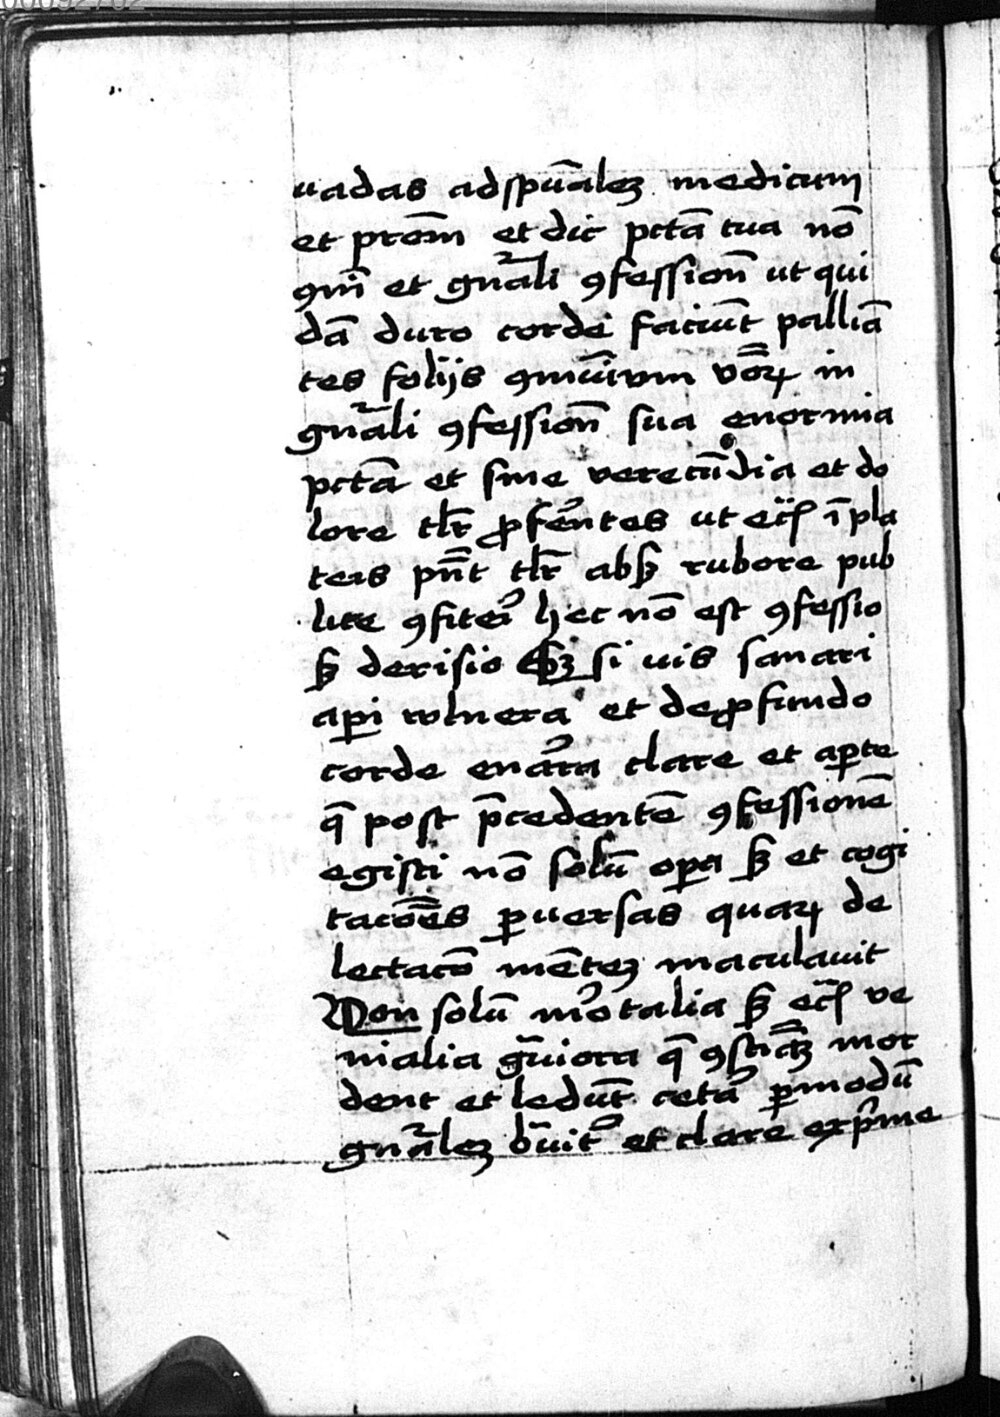 00092702
uadas adspu̅alez medicum
et pro̅m et dic pct̅a tua no̅
ꝯm̅i et gn̅ali ꝯfession̅ ut qui
da̅ duro corde faciu̅t pallia̅
tes folijs ꝯmu̅ium v̅o̅ꝝ in
gn̅ali ꝯfession̅ sua enormia
pct̅a et sine verecu̅dia et do
lore tlr̅ ꝓfe̅ntes ut eci̅ i̅ pla
teis pn̅t tlr̅ absqꝫ rubore pub
lice ꝯfiter̅ hec no̅ est ꝯfessio
sꝫ derisio Sꝫ si uis sanari
aꝑi vulnera et de ꝓfundo
corde ena̅ra clare et aꝑte
q̅ post p̅cedente̅ ꝯfessione̅
egisti no̅ solu̅ oꝑa sꝫ et cogi
taco̅es ꝑuersas quaꝝ de
lectaco̅ me̅tez maculauit
Non solu̅ mo̅talia sꝫ eci̅ ve
nialia g̅uiora q̅ ꝯsci̅az mor
dent et ledu̅t ceta̅ ꝑ modu̅
gn̅alez b̅uit̅ et clare exp̅me